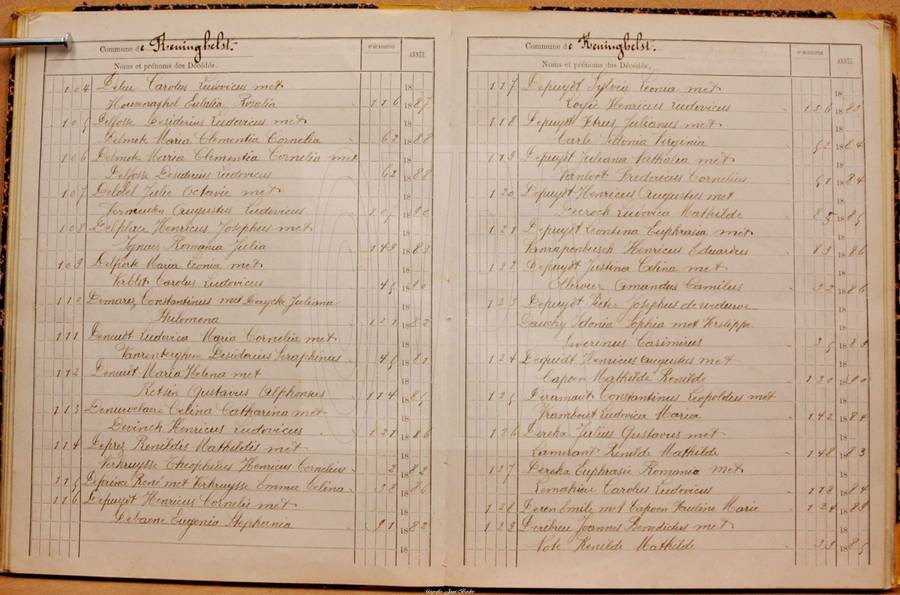 Commune de Reninghelst.
Nos et prénoms des Décédés.
Nº DU REGISTRE
ANNÉE
104 Delie Carolus Ludovicus met
Houvenaghel Eulalia Rosalia 116 1887
105 Delfosse Desiderius Ludovicus met
Delmote Maria Clementia Cornelia 62 1888
106 Delmote Maria Clementia Cornelia met
Delfosse Desiderius Ludovicus 62 1888
107 Julie Octavie met
Vermeulen Augustus Ludovicus 1890
108 Delplace Henricus Josephus met
Ignace Romania Julia 143 1883
109 Delporte Maria Leonia met
Verblot Carolus Ludovicus 45 1890
110 Demarez Constantinus met Deryck Juliana
Philomena 121 1882
111 Denuudt Ludovica Maria Cornelia met
Vanrenterghem Desiderius Seraphinus 45 1881
112 Denuit Maria Helena met
Retsin Gustavus Alphonsus 114 1885
113 Denuwelaere Celina Catharina met
Devinck Henricus Ludovicus 121 1886
114 Deprez Renildis Mathildis met
Verkruysse Theophilus Henricus Cornelius 2 1882
115 René met Verkruysse Emma Celina 38 1886
116 Depuydt Henricus Cornelis met
Debaene Eugenia Stephania 91 1882
Commune de Reninghelst.
Noms et prénoms des Décédés.
Nº DU REGISTRE
ANNÉE
117 Depuydt Sylvie Leonia met
Henricus Ludovicus 136 1882
118 Depuydt Petrus Julianus met
Carle Sidonia Virginia 52 1884
119 Depuydt Juliana Nathalia met
Vanloot Fredericus Cornelius 51 1884
120 Depuydt Henricus Augustus met
Ludovica Mathilde 85 1885
121 Depuydt Leontina Euphrasia met
Henricus Eduardus 83 1886
122 Depuydt Justina Celina met
Amandus Camilus 32 1886
123 Depuydt Pieter Josephus de weduwe
Dauchy Idonia Sophia met Versteppe
Severinus Casimirus 35 1888
124 Dequidt Henricus Augustus met
Capoen Mathilde Renilde 130 1880
125 Deramaut Constantinus Leopoldus met
Ludovica Maria 142 1884
126 Dereka Julius Gustavus met
Renilde Mathilde 148 1883
127 Dereka Euphrasie Romania met
Lemahieu Carolus Ludovicus 178 1884
128 Deren Emile met Capoen Pauline Marie 124 1888
129 Joannes Benedictus met
Note Renilde Mathilde 23 1885